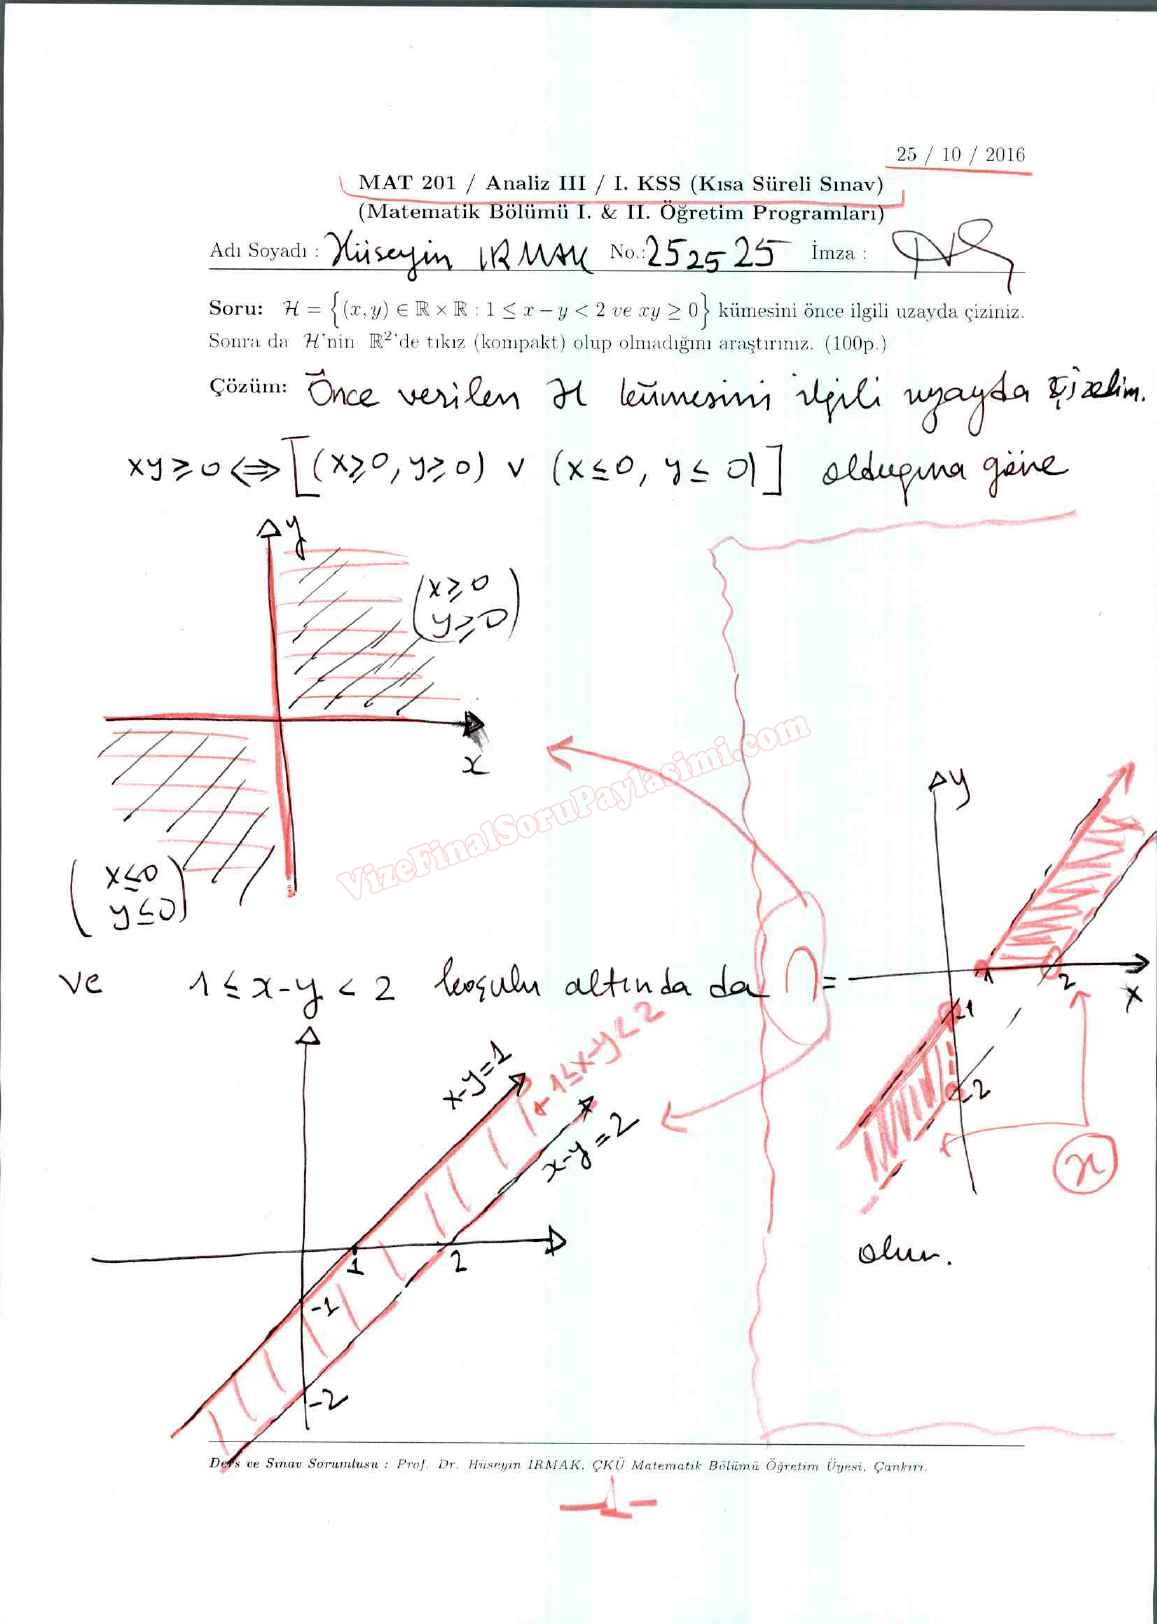 25 / 10 / 2016
MAT 201 / Analiz III / I. KSS (Kısa Süreli Sınav)
(Matematik Bölümü I. & II. Öğretim Programları)
Adı Soyadı : Hüseyin IRMAK No.: 252525 İmza :
Soru: ℋ = {(x, y) ∈ ℝ × ℝ : 1 ≤ x − y < 2 ve xy ≥ 0} kümesini önce ilgili uzayda çiziniz.
Sonra da ℋ'nin ℝ²'de tıkız (kompakt) olup olmadığını araştırınız. (100p.)
Çözüm: Önce verilen ℋ kümesini ilgili uzayda çizelim.
xy ≥ 0 ⇔ [(x ≥ 0, y ≥ 0) ∨ (x ≤ 0, y ≤ 0)] olduğuna göre
y
(x ≥ 0
y ≥ 0)
x
(x ≤ 0
y ≤ 0)
VizeFinalSoruPaylasimi.com
y
1 2
x
-1
-2
ℋ
ve 1 ≤ x-y < 2 koşulu altında da ∩ =
x-y=1
1≤x-y<2
x-y=2
1 2
-1
-2
olur.
Ders ve Sınav Sorumlusu : Prof. Dr. Hüseyin IRMAK, ÇKÜ Matematik Bölümü Öğretim Üyesi, Çankırı.
-1-